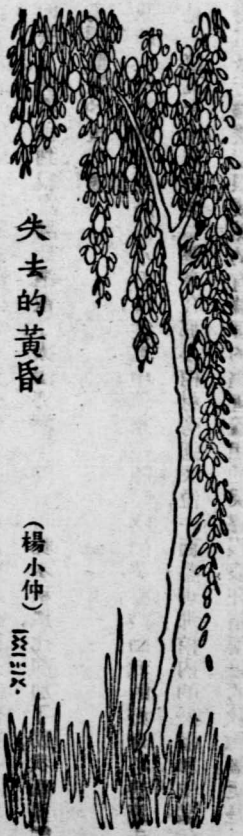 失去的黃昏
(楊小仲)